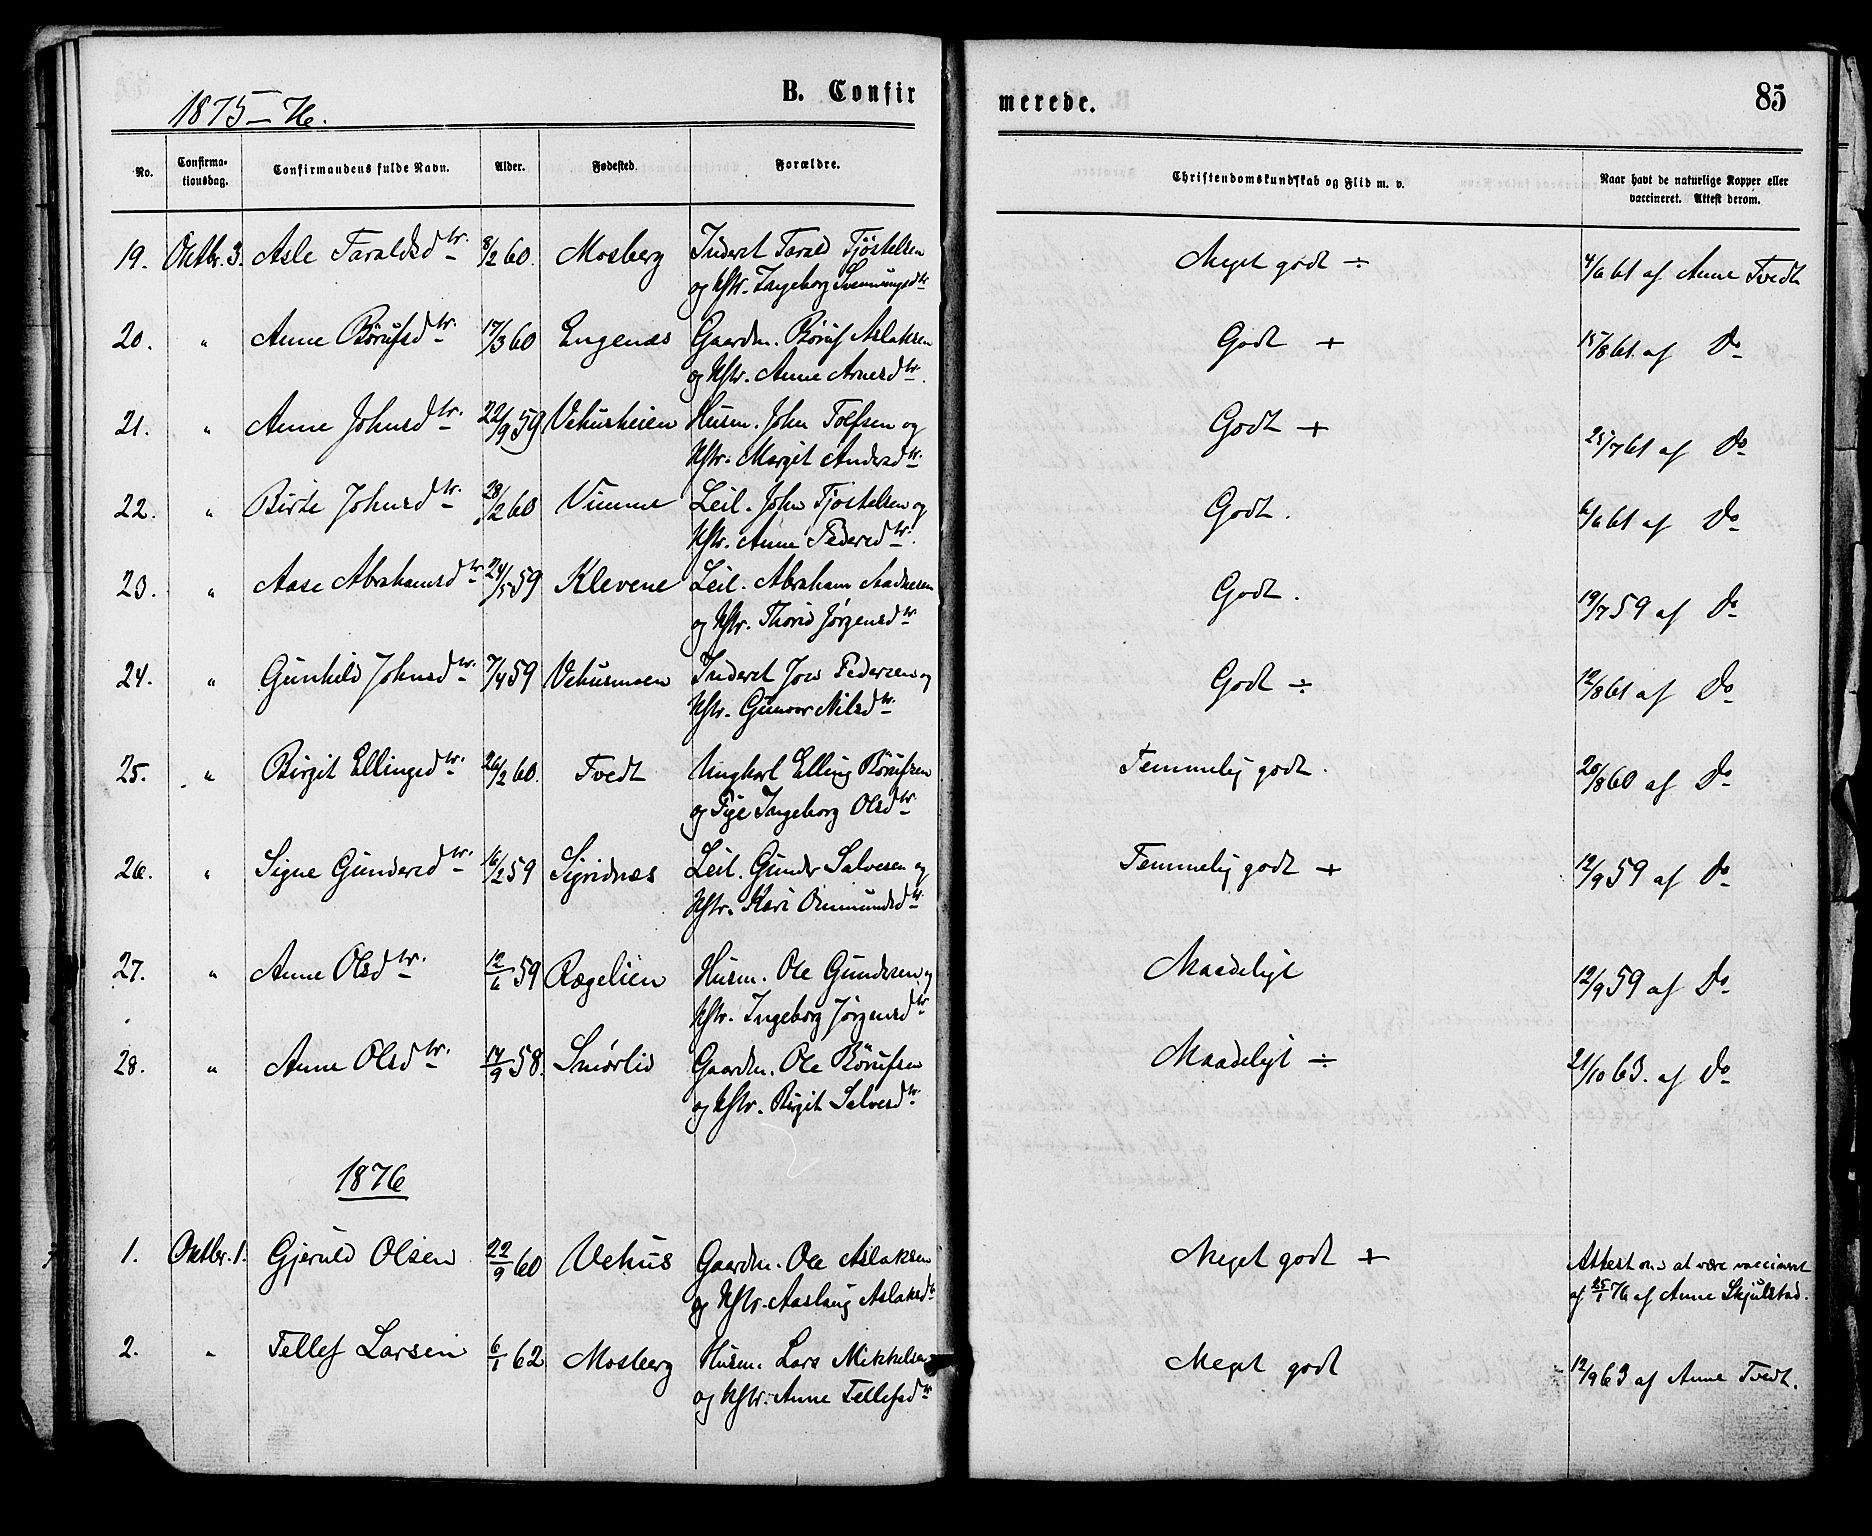 1875-76.
B. Confirmerede.
85
No. Confirmationsdag. Confirmandens fulde Navn. Alder. Fødested. Forældre. Christendomskundskab og Flid m. v. Naar havt de naturlige Kopper eller vaccineret. Attest derom.
19. Oktbr. 3. Asle Taraldsdtr. 8/2 60. Mosberg Inderst Tarald Tjøstelsen Meget godt ÷ 4/6 61 af Anne Tvedt
og Hstr. Ingeborg Svenningsdtr
20. " Anne Børufsdtr. 17/3 60 Engenæs Gaardm. Børuf Aslaksen Godt + 15/8 61. af Do
og Hstr. Anne Arnesdtr.
21. " Anne Johnsdtr. 22/9 59 Vehusheien Husm. John Tolfsen og Godt + 25/7 61 af Do
Hstr. Margit Andersdtr.
22. " Birte Johnsdtr. 28/2 60 Vimme Leil. John Tjøstelsen og Godt. 6/6 61 af Do
Hstr. Anne Pedersdtr.
23. " Aase Abrahamsdtr 24/5 59 Klevene Leil. Abraham Aadnesen Godt. 19/7 59 af Do
og Hstr. Thorid Jørgensdtr
24. " Gunhild Johnsdtr. 7/4 59 Vehusmoen Inderst Jon Pedersen og Godt ÷ 12/8 61 af Do
Hstr. Gunvor Nilsdtr.
25. " Birgit Ellingsdtr. 26/2 60. Tvedt Ungkarl Elling Børufsen Temmelig godt. 20/8 60 af Do
og Pige Ingeborg Olsdtr
26. " Signe Gundersdtr. 16/2 59 Sigridnæs Leil. Gunder Salvesen og Temmelig godt + 12/9 59 af Do
Hstr. Kari Ommundsdtr
27. " Anne Olsdtr. 12/6 59 Rægelien Husm. Ole Gundersen og Maadeligt 12/9 59 af Do
Hstr. Ingeborg Jørgensdtr
28. " Anne Olsdtr. 17/9 58. Smørlid Gaardm. Ole Børufsen Maadeligt ÷ 21/10 63. af Do
og Hstr. Birgit Salvesdtr.
1876
1. Oktbr. 1. Gjeruld Olsen 22/9 60 Vehus Gaardm. Ole Aslaksen Meget godt + Attest om at være vaccineret
og Hstr. Aaslaug Aslaksdtr af 25/1 76 af Anne Skjulstad.
2. " Tellef Larsen 6/1 62 Mosberg Husm. Lars Mikkelsen Meget godt 12/9 63 af Anne Tvedt.
og Hstr. Anne Tellefsdtr